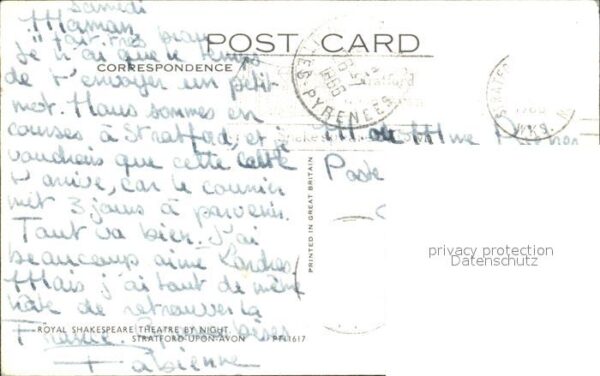 Samedi
Maman,
il fait très beau
POST CARD
Je n'ai que le temps
CORRESPONDENCE
de t'envoyer un petit
mot. Nous sommes en
courses à Stratford, et je
voudrais que cette carte
t'arrive, car le courrier
met 3 jours à parvenir.
Tout va bien. J'ai
beaucoup aimé Londres,
Mais j'ai tout de même
hâte de retrouver la
France.
bises
Fabienne
ROYAL SHAKESPEARE THEATRE BY NIGHT.
STRATFORD-UPON-AVON PT11617
PRINTED IN GREAT BRITAIN
M. et Mme
Poste
PYRENEES
privacy protection
Datenschutz